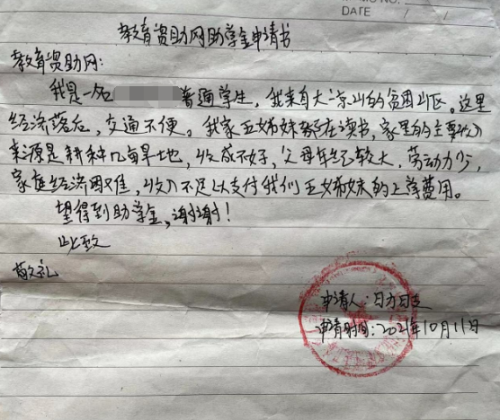 DATE / /
教育资助网助学金申请书
教育资助网:
我是一名 普通学生,我来自大凉山的贫困山区。这里
经济落后,交通不便。我家五姊妹都在读书,家里的主要收入
来源是耕种几亩旱地,收成不好,父母年纪较大,劳动力少,
家庭经济困难,收入不足以支付我们五姊妹的上学费用。
望得到助学金,谢谢!
此致
敬礼
申请人:日力日
申请时间:2021年10月11日